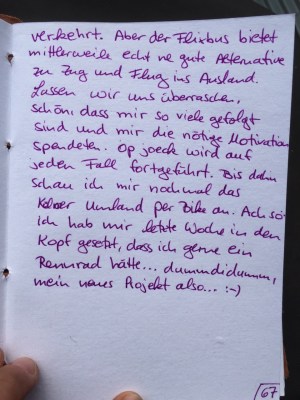 verkehrt. Aber der Flixbus bietet
mittlerweile echt ne gute Alternative
zu Zug und Flug ins Ausland.
Lassen wir uns überraschen,
schön dass mir so viele gefolgt
sind und mir die nötige Motivation
spendeten. Op joeck wird auf
jeden Fall fortgeführt. Bis dahin
schau ich mir nochmal das
Umland per Bike an. Ach so:
Ich hab mir letzte Woche in den
Kopf gesetzt, dass ich gerne ein
Rennrad hätte... dummdidumm,
mein neues Projekt also... :-)
67